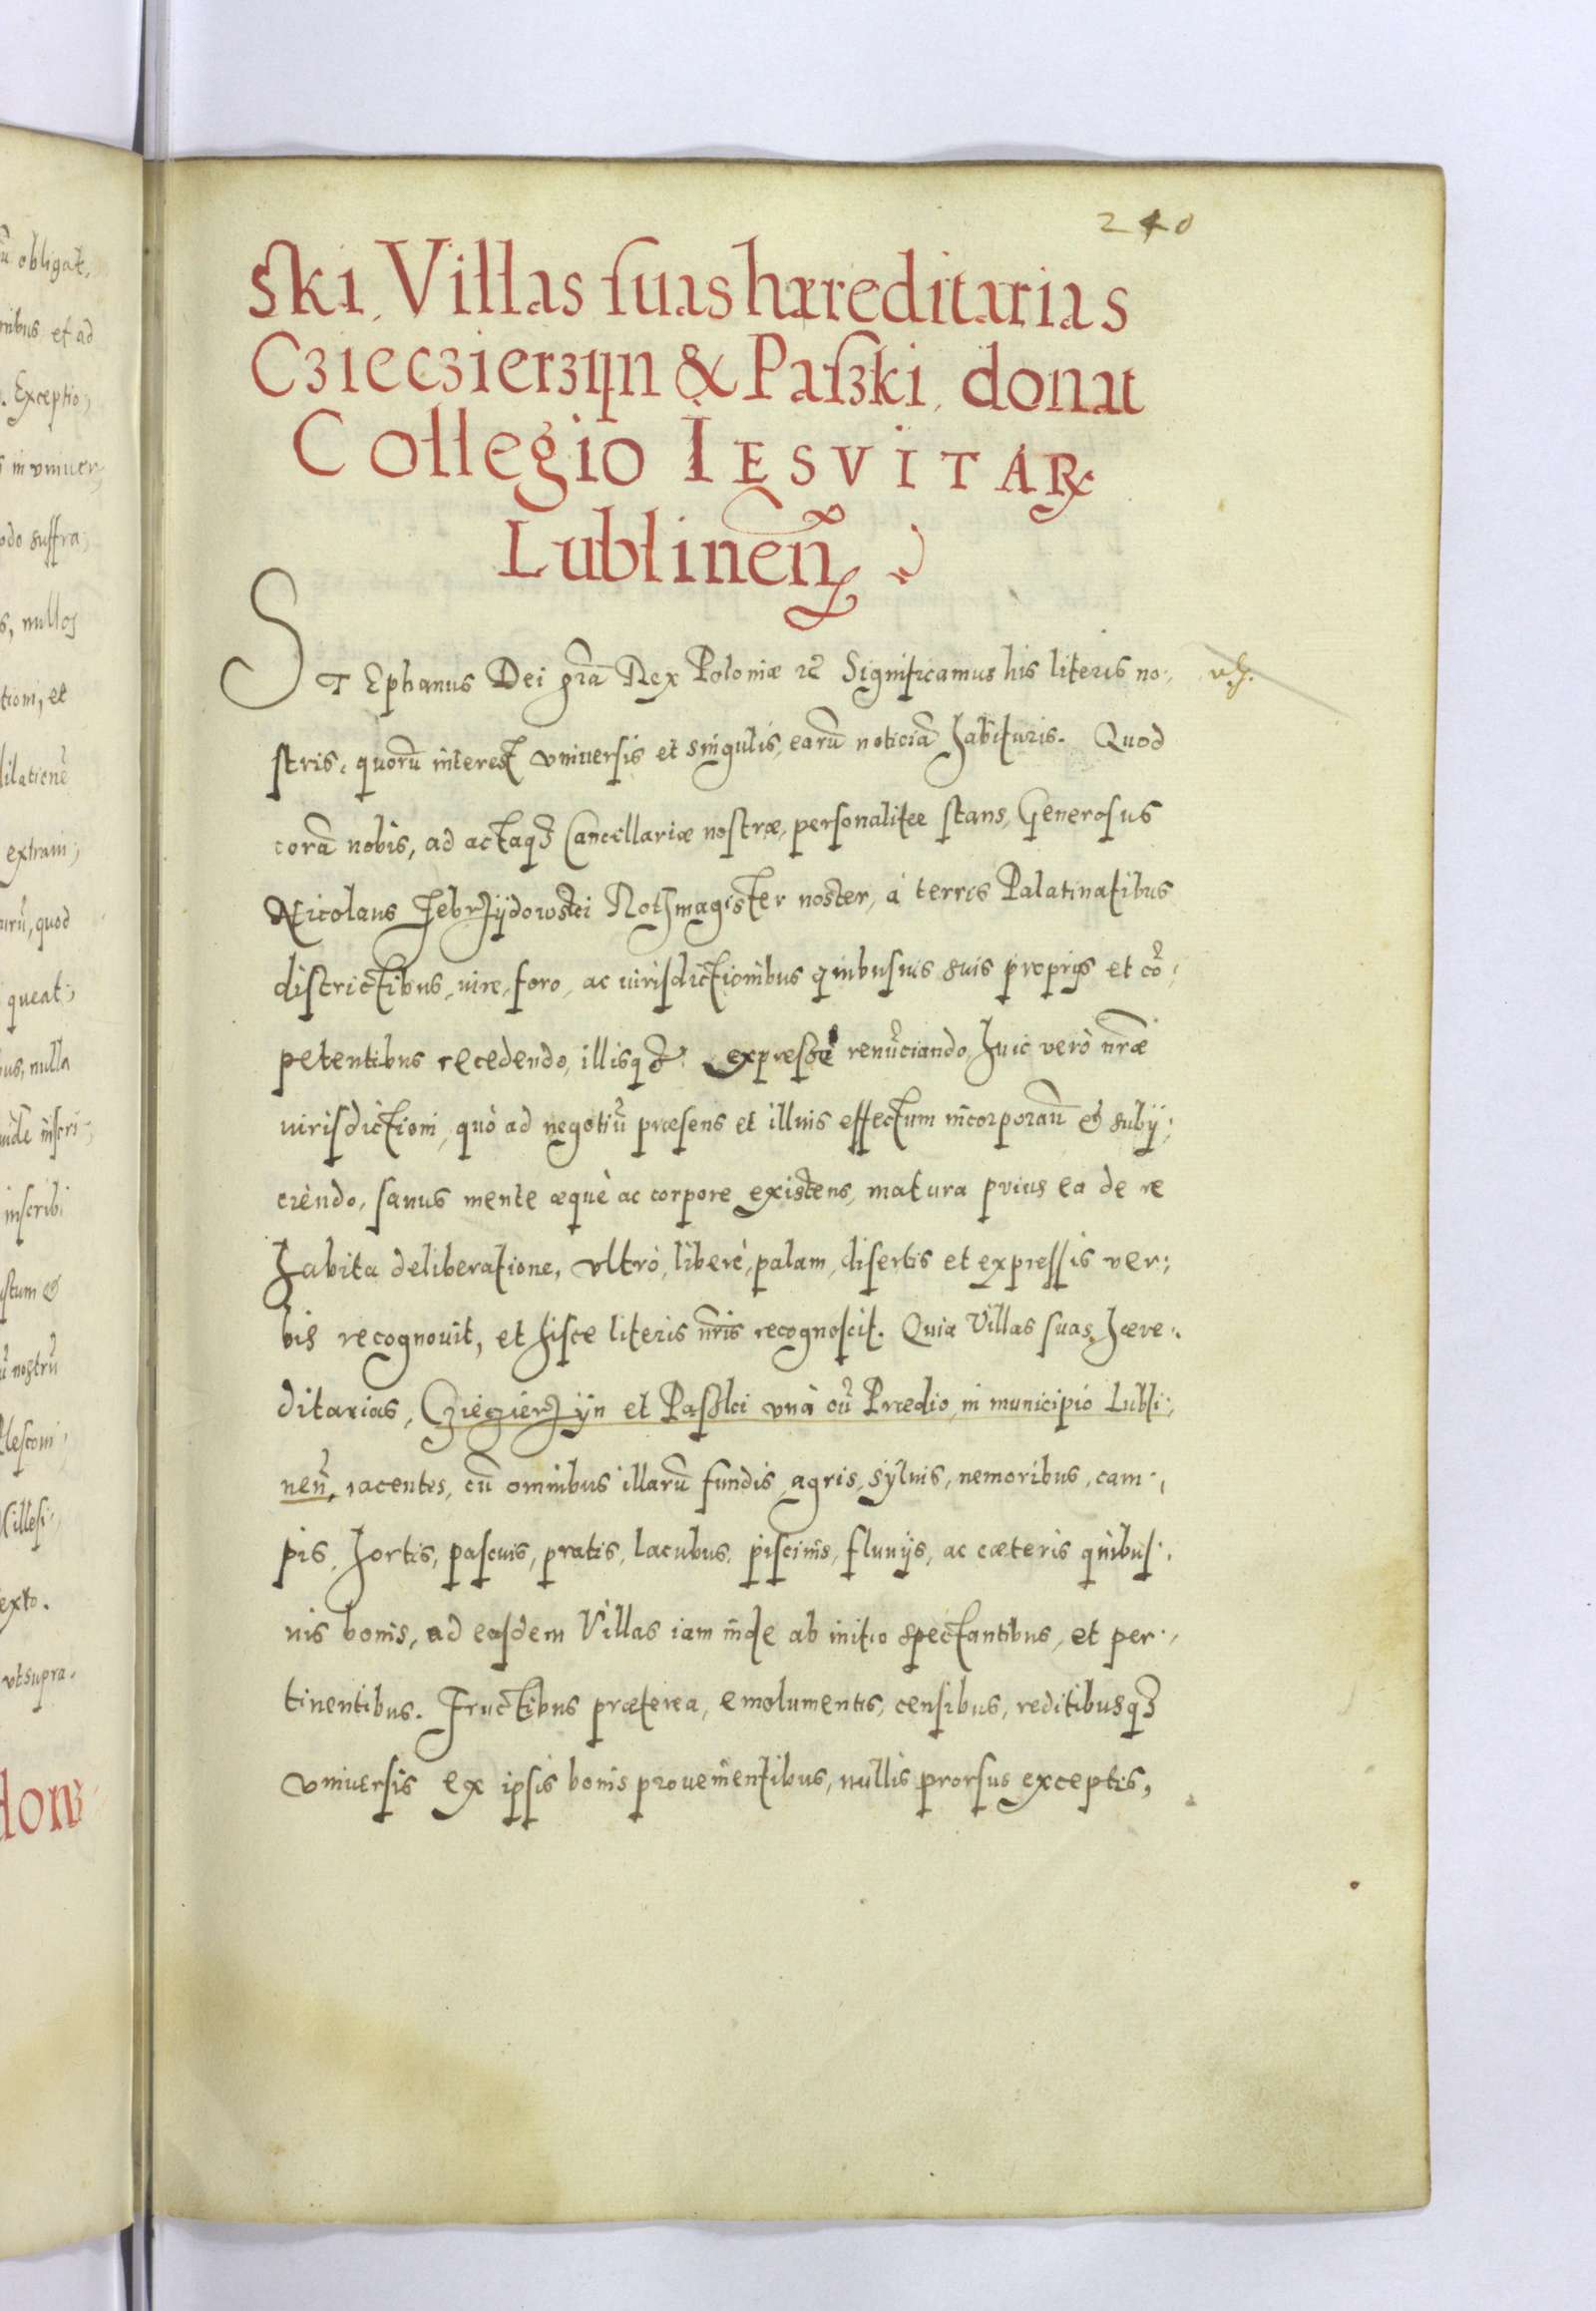 240
ski, Villas suas hæreditarias
Czieczierzÿn & Paszki, donat
Collegio IESVITARꝝ
Lublineñ
STEphanus Dei gr̃a Rex Poloniæ ꝛc̃ Significamus his literis no⸗
stris, quorũ interest vniuersis et singulis, earũ noticiã habituris. Quod
corã nobis, ad actaqꝫ Cancellariæ nostræ, personalitee stans, Generosus
Nicolaus Zebrzÿdowski Rothmagister noster, á terris Palatinatibus
districtibus, iure, foro, ac iurisdictionibus quibusuis suis proprijs et cõ⸗
petentibus recedendo, illisqꝫ expressè renũciando, huic verò nr̃æ
iurisdictioni, quò ad negotiũ præsens et illius effectum incorporañ & subij⸗
ciendo, sanus mente æquè ac corpore existens, matura prius ea de re
habita deliberatione, vltrò, liberè, palam, disertis et expressis ver⸗
bis recognouit, et hisce literis nr̃is recognoscit. Quia Villas suas hære⸗
ditarias, Cziecierzÿn et Paszki vnà cũ Prædio, in municipio Lubli⸗
neñ, iacentes, cũ omnibus illarũ fundis, agris, syluis, nemoribus, cam⸗
pis, hortis, pascuis, pratis, lacubus, piscinis, fluuijs, ac cæteris quibus⸗
uis bonis, ad easdem Villas iam inde ab initio spectantibus, et per⸗
tinentibus. Fructibus præterea, emolumentis, censibus, reditibusqꝫ
vniuersis ex ipsis bonis prouenientibus, nullis prorsus exceptis,